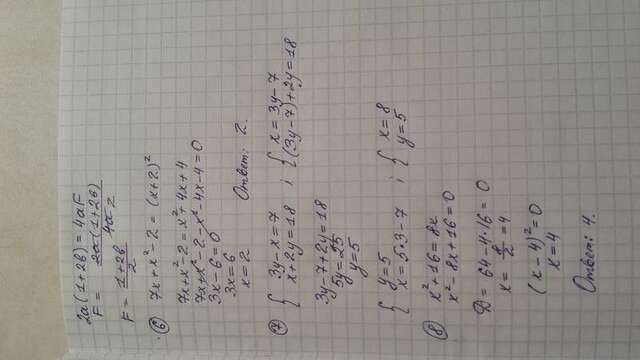 2a(1+2b)=4aF
F = 2a(1+2b) / 4a2
F = 1+2b / 2
6) 7x+x²-2=(x+2)²
7x+x²-2=x²+4x+4
7x+x²-2-x²-4x-4=0
3x-6=0
3x=6
x=2 Ответ: 2.
7) { 3y-x=7 ; { x=3y-7
{ x+2y=18 { (3y-7)+2y=18
3y-7+2y=18
5y=25
y=5
{ y=5 ; { x=8
{ x=5·3-7 { y=5
8) x²+16=8x
x²-8x+16=0
D=64-4·16=0
x=8/2=4
(x-4)²=0
x=4
Ответ: 4.